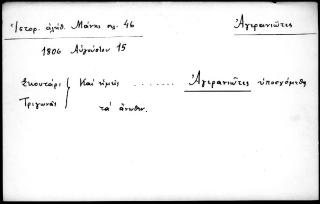 Ἱστορ. ἀλήθ. Μάνης σελ. 46
Ἀγερανιῶτες
1806 Αὐγούστου 15
Σκουτάρι
Τριγωνᾶς
Καὶ ἡμεῖς . . . . . . Ἀγερανιῶτες ὑποσχόμεθα
τὰ ἄνωθεν.